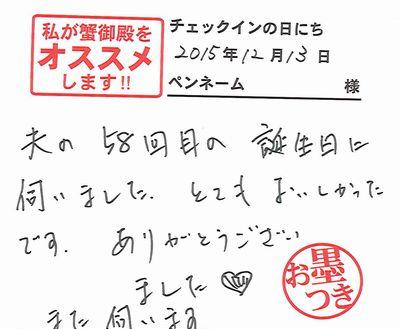 私が蟹御殿を
オススメ
します!!
チェックインの日にち
2015年12月13日
ペンネーム 様
夫の 58回目の 誕生日に
伺いました. とても おいしかった
です. ありがとうござい
ました♡
また 伺います
お墨
つき